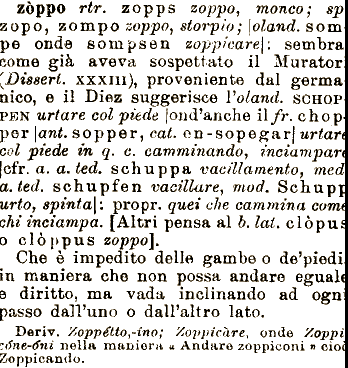 zòppo rtr. zopps zoppo, monco; sp
zopo, zompo zoppo, storpio; |oland. som
pe onde sompsen zoppicare|: sembra
come già aveva sospettato il Murator
(Dissert. XXXIII), proveniente dal germa
nico, e il Diez suggerisce l'oland. SCHOP
PEN urtare col piede |ond'anche il fr. chop
per |ant. sopper, cat. en-sopegar| urtare
col piede in q. c. camminando, inciampare
|cfr. a. a. ted. schuppa vacillamento, med
a. ted. schupfen vacillare, mod. Schupp
urto, spinta|: propr. quei che cammina come
chi inciampa. [Altri pensa al b. lat. clòpus
o clòppus zoppo].
Che è impedito delle gambe o de'piedi
in maniera che non possa andare eguale
e diritto, ma vada inclinando ad ogni
passo dall'uno o dall'altro lato.
Deriv. Zoppétto,-ino; Zoppicàre, onde Zoppi
cóne-óni nella maniera « Andare zoppiconi » cioè
Zoppicando.